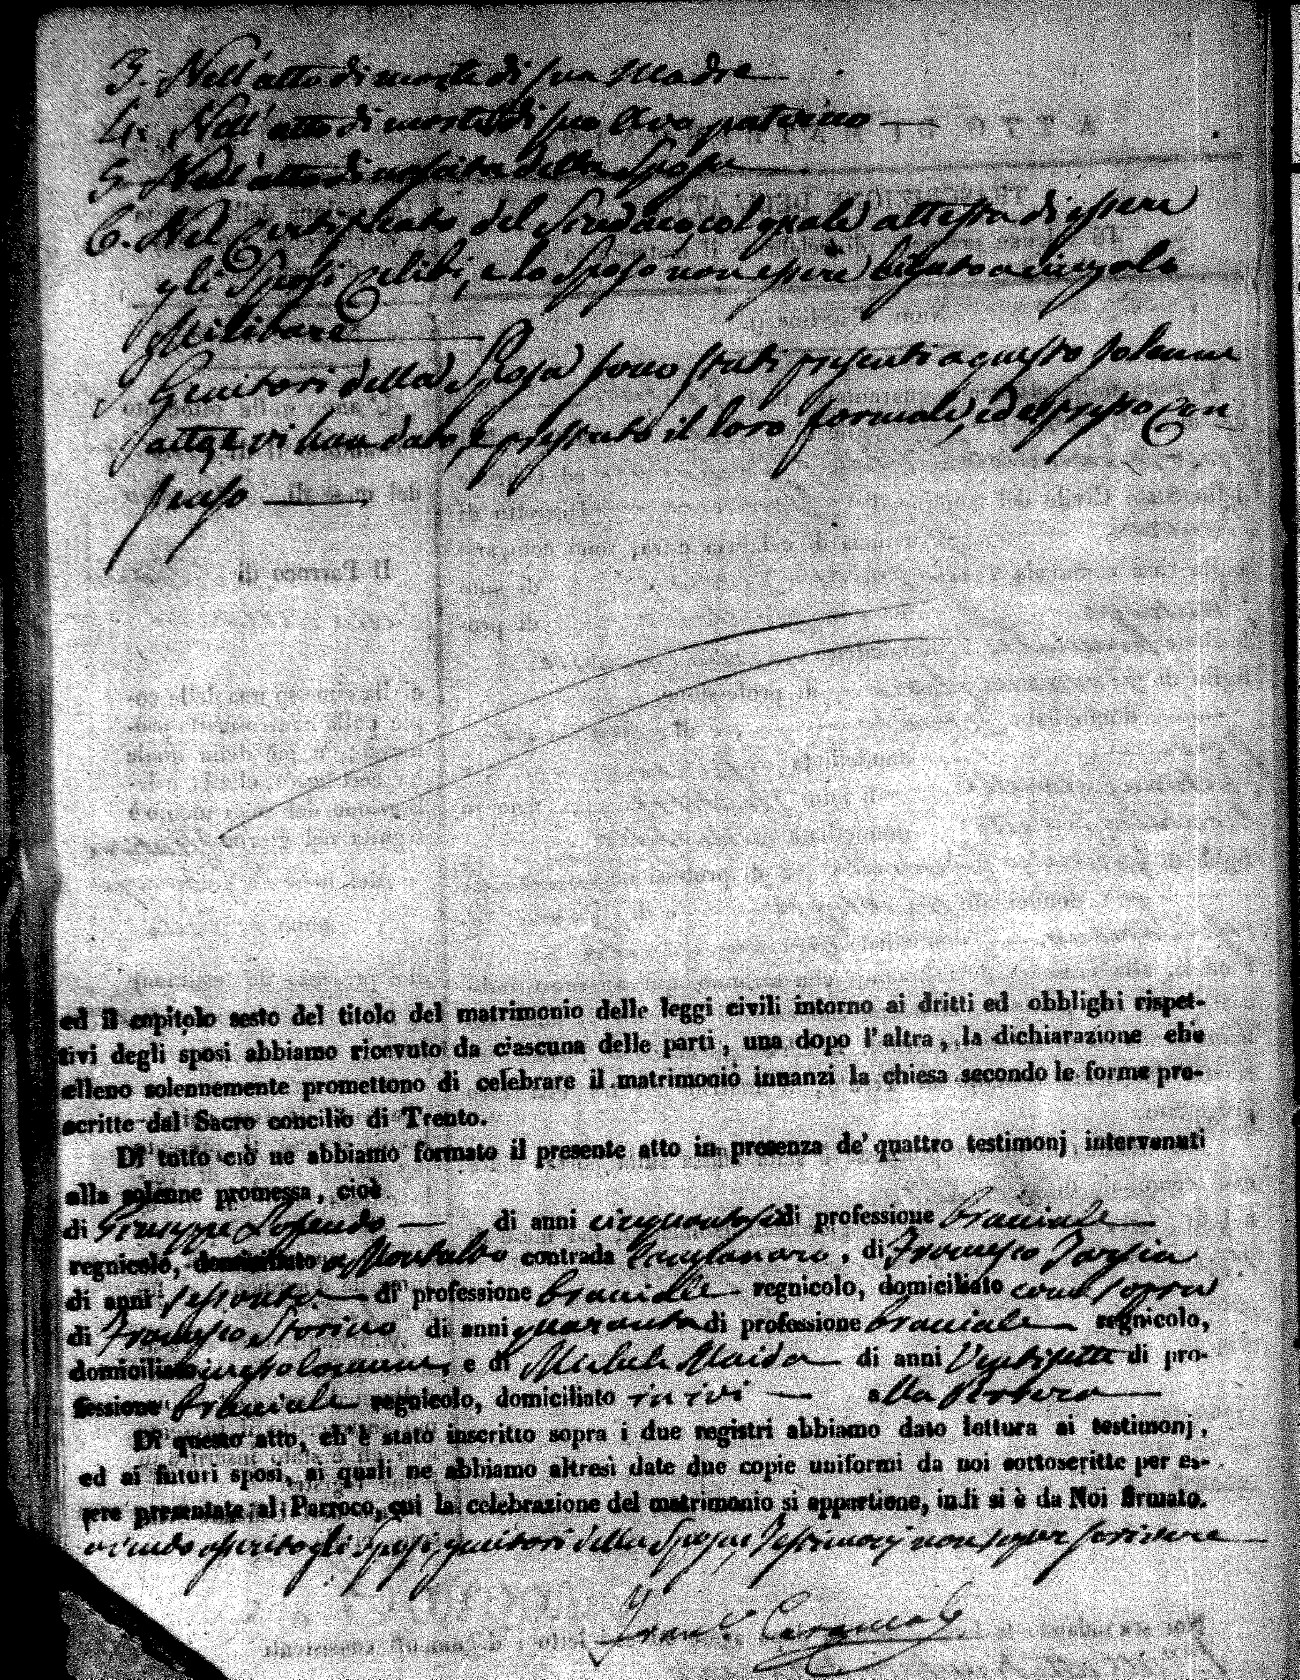 3. Nell'atto di morte di sua Madre
4. Nell'atto di morte di suo Avo paterno
5. Nell'atto di nascita della Sposa
6. Nel Certificato del Sindaco col quale attesta di essere
gli Sposi celibi, e lo Sposo non essere ligato a vincolo
Militare
I Genitori della Sposa sono stati presenti a questo solenne
atto, e vi han dato, e prestato il loro formale, ed espresso con
senso
ed il capitolo sesto del titolo del matrimonio delle leggi civili intorno ai dritti ed obblighi rispet-
tivi degli sposi abbiamo ricevuto da ciascuna delle parti, una dopo l'altra, la dichiarazione che
elleno solennemente promettono di celebrare il matrimonio innanzi la chiesa secondo le forme pre-
scritte dal Sacro concilio di Trento.
Di tutto ciò ne abbiamo formato il presente atto in presenza de' quattro testimonj intervenuti
alla solenne promessa, cioè
di Giuseppe di anni cinquantasei di professione bracciale
regnicolo, domiciliato a Montalto contrada , di Francesco
di anni sessanta di professione bracciale regnicolo, domiciliato come sopra
di Francesco Storino di anni quaranta di professione bracciale regnicolo,
domiciliato in questo comune, e di Michele Maida di anni Ventisette di pro-
fessione bracciale regnicolo, domiciliato in ivi alla
Di questo atto, ch'è stato inscritto sopra i due registri abbiamo dato lettura ai testimonj,
ed ai futuri sposi, ai quali ne abbiamo altresì date due copie uniformi da noi sottoscritte per es-
sere presentate al Parroco, cui la celebrazione del matrimonio si appartiene, indi si è da Noi firmato.
avendo asserito gli Sposi, genitori della Sposa, Testimonj non saper scrivere